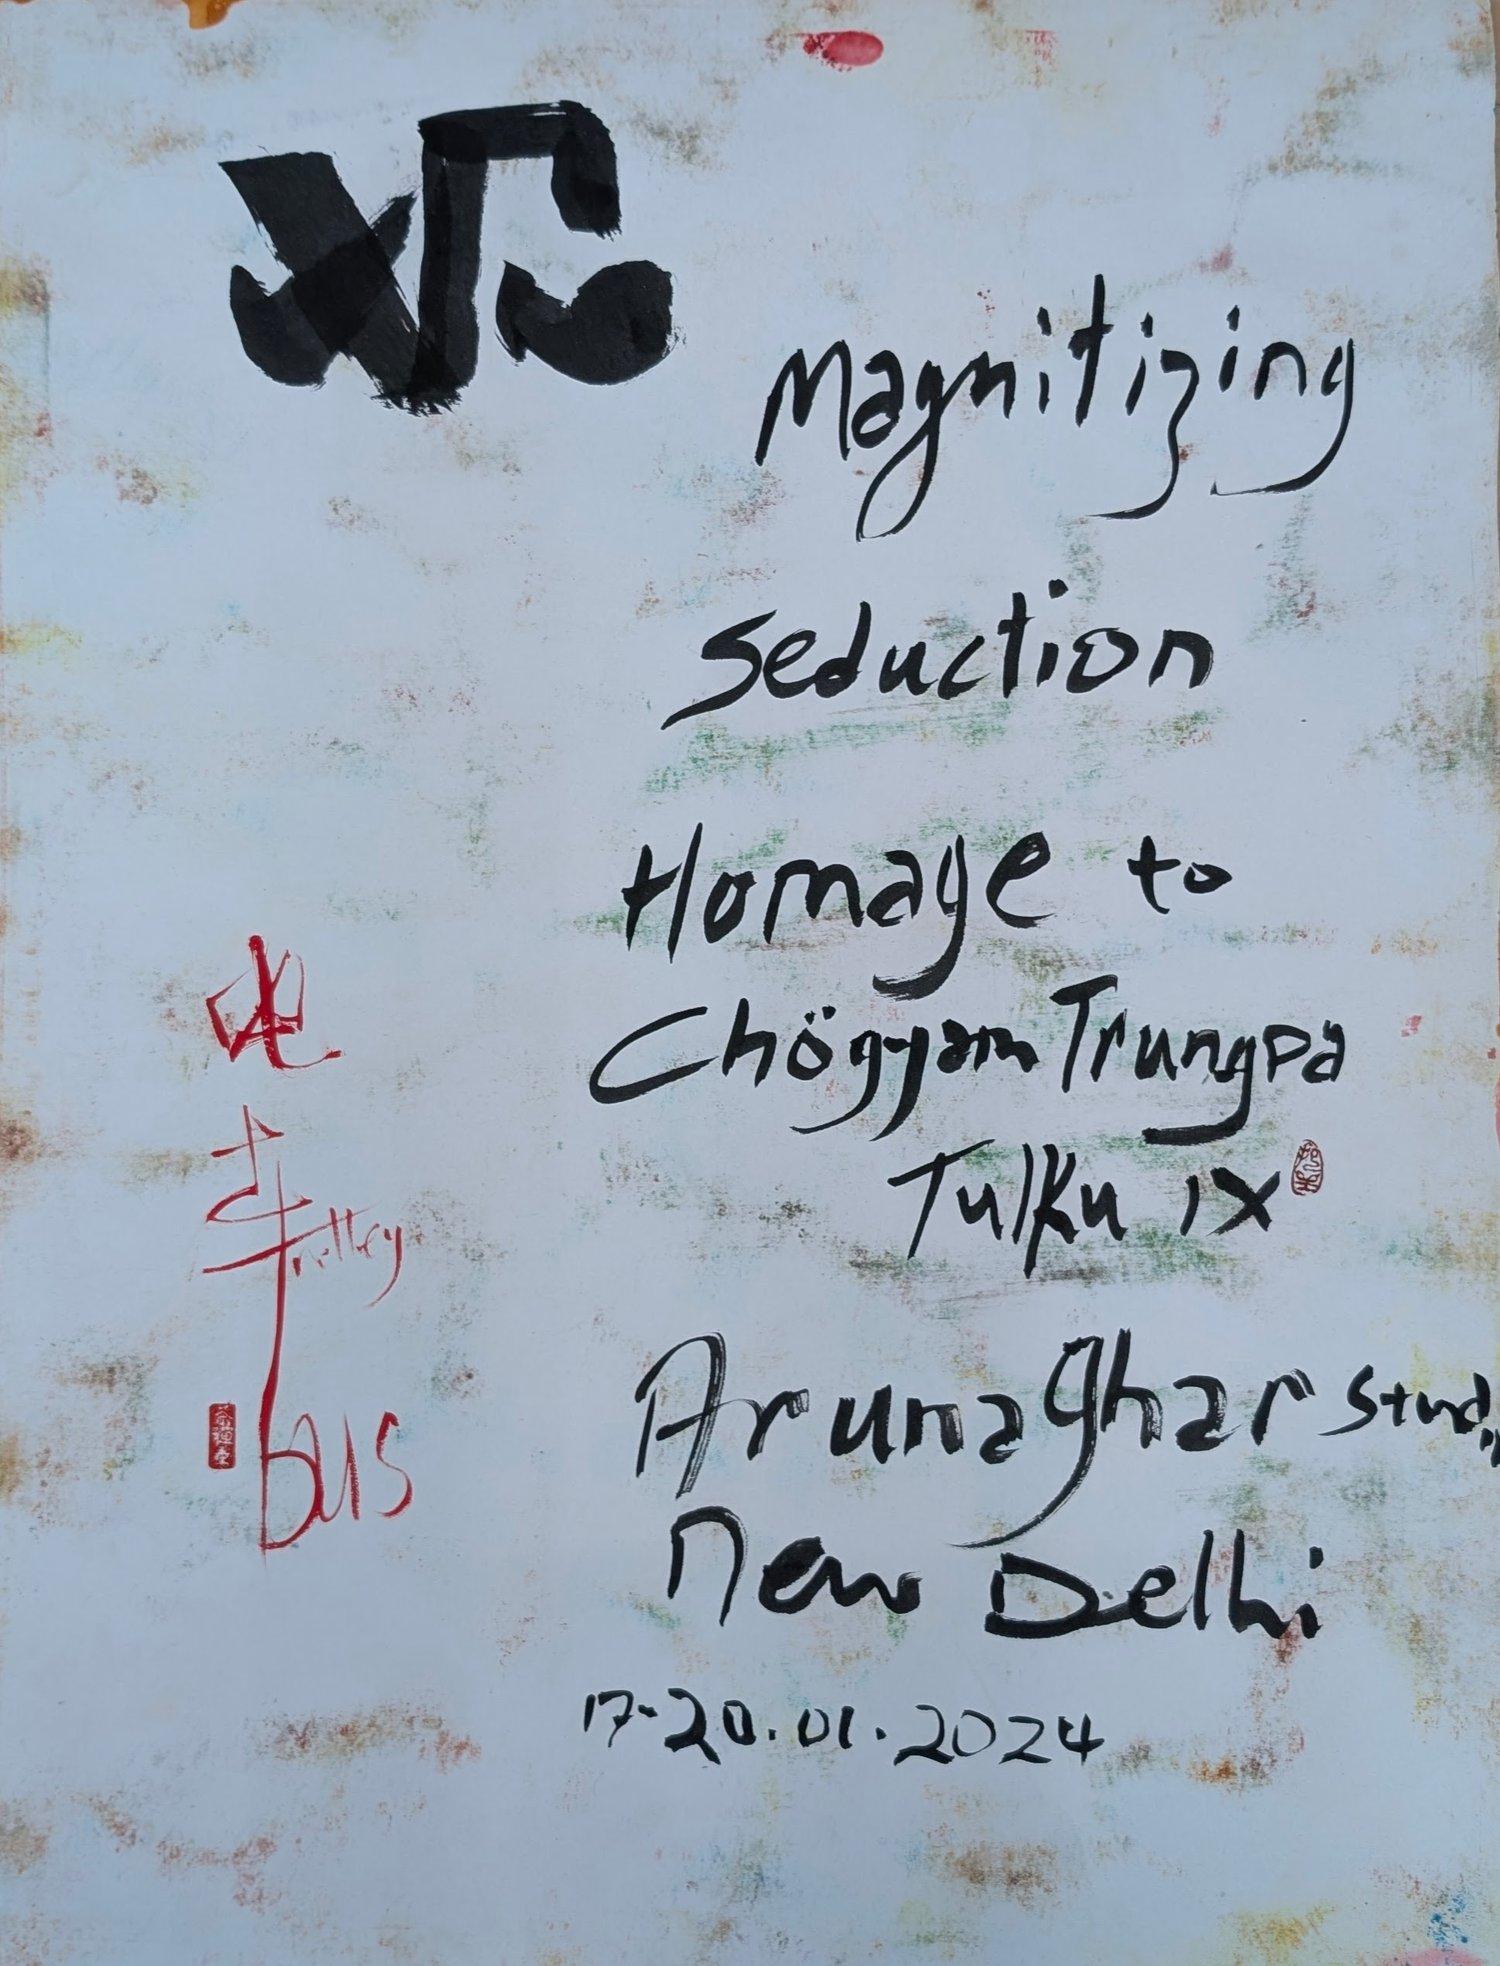 Magnitizing
Seduction
Homage to
Chögyam Trungpa
Tulku IX
Arunaghar
New Delhi
17-20.01.2024
電
车
trolley
bus